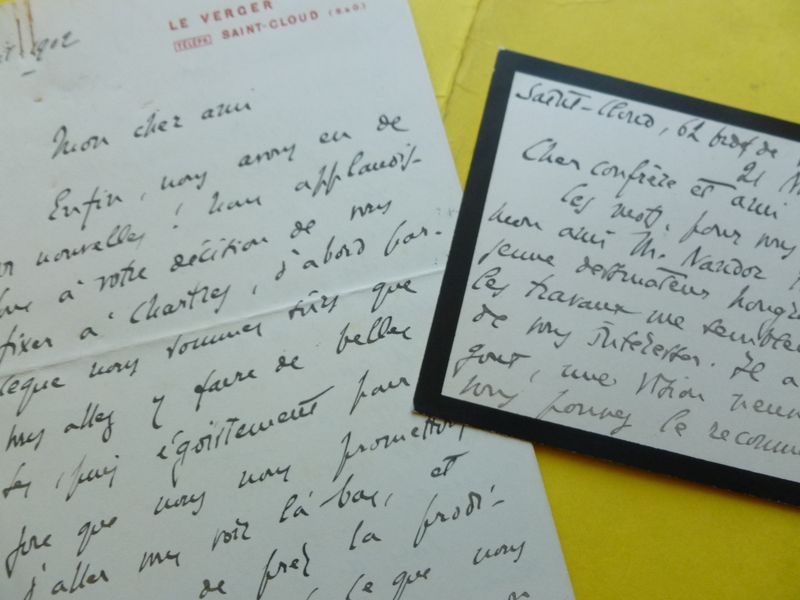 LE VERGER
TÉLÉPH. SAINT-CLOUD (S&O)
Mon cher ami
Enfin, nous avons eu de
nouvelles! Nous applaudis-
à votre décision de vous
fixer à Chartres, d'abord par-
ceque nous sommes sûrs que
vous allez y faire de belles
puis égoïstement parce
que nous nous promettons
d'aller vous voir là-bas, et
de près la prodi-
ce que nous
Saint-Cloud, 62 de
21 N
Cher confrère et ami
Ces mots, pour vous
mon ami M. Nandor
jeune dessinateur hongr
Ses travaux me semblen
de vous intéresser. Il a
goût, une vision neuv
vous pouvez le recomm